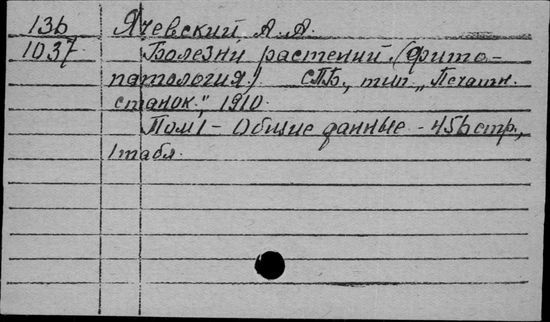 136 Ячевский А. А.
1037 Болезни растений. (фито-
патология) СПБ., тип. „Печатн.
станок.", 1910.
Том I - Общие данные - 456 стр.,
1 табл.